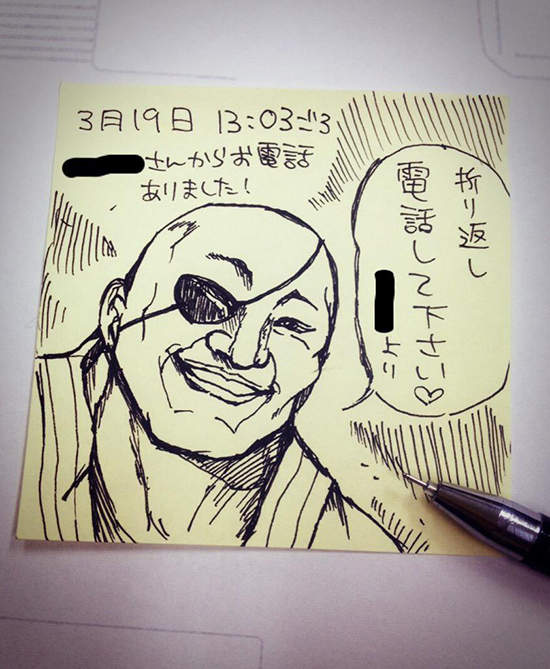 3月19日 13:03ごろ
さんからお電話
ありました!
折り返し
電話して下さい♡
より